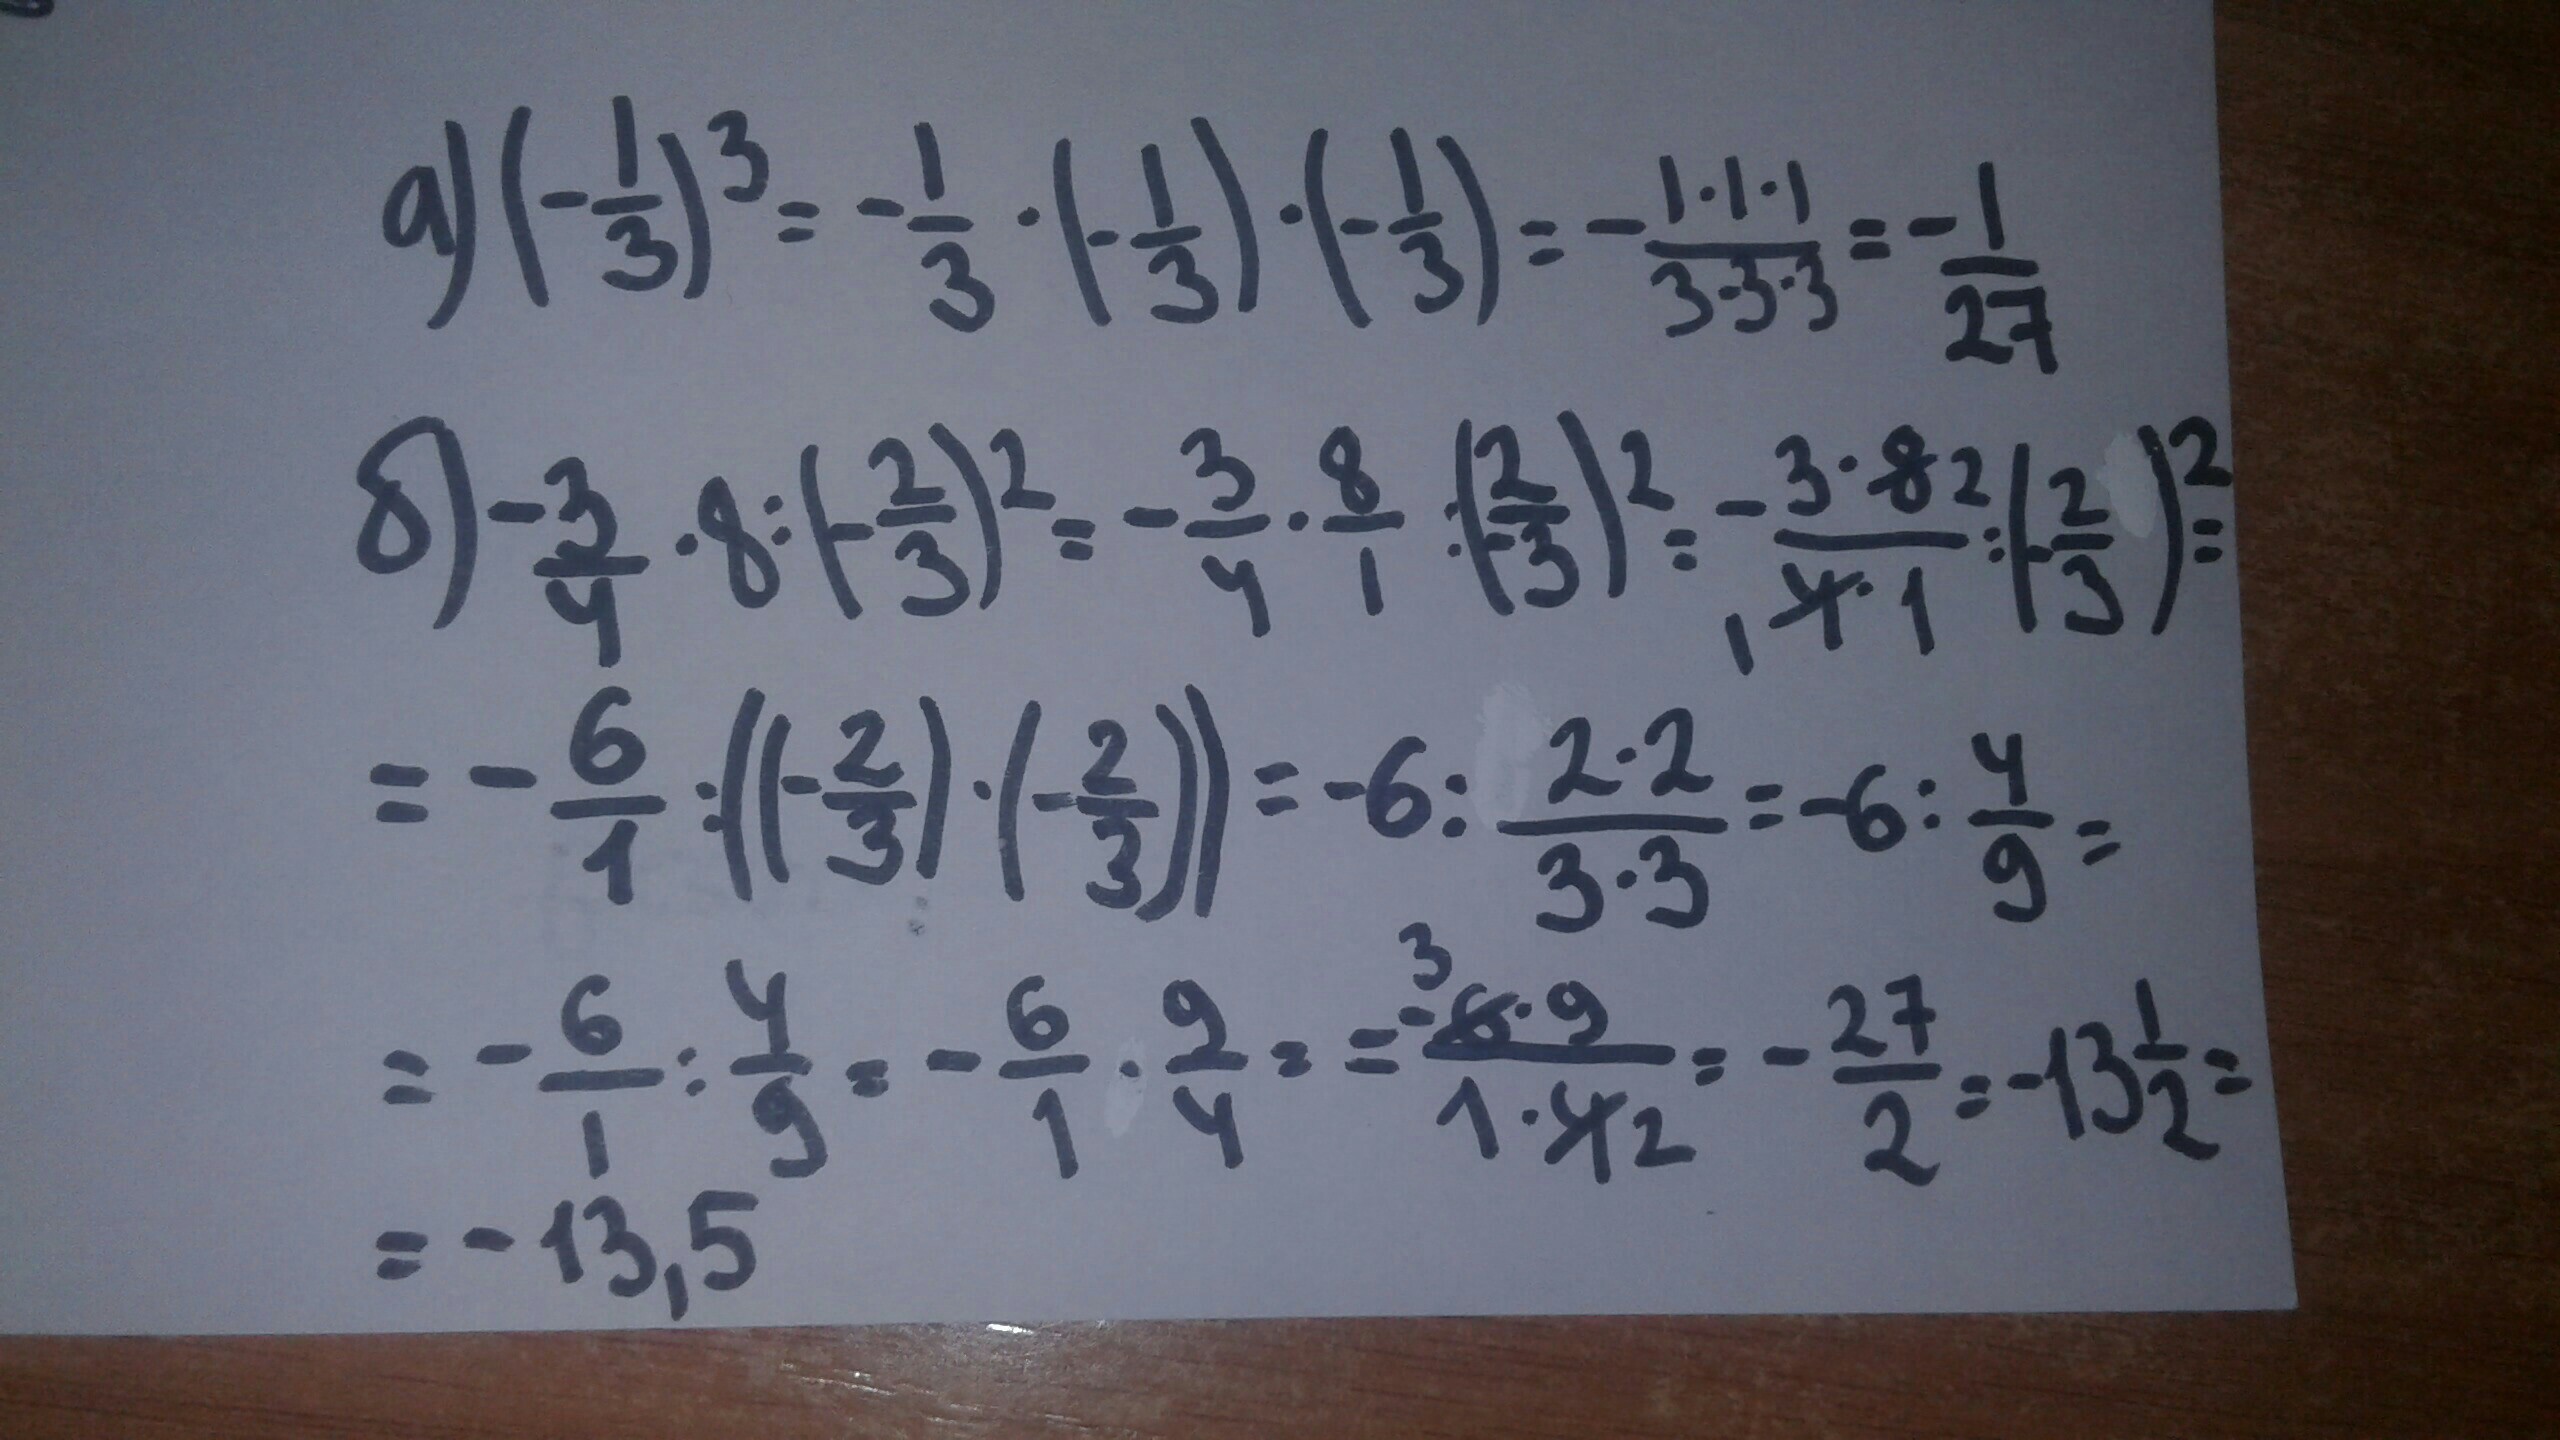 а) (-1/3)³ = -1/3 · (-1/3) · (-1/3) = - 1·1·1/3·3·3 = -1/27
б) -3/4 · 8 : (-2/3)² = -3/4 · 8/1 : (-2/3)² = - 3·8 2/1 4·1 : (-2/3)² =
= -6/1 : ((-2/3) · (-2/3)) = -6 : 2·2/3·3 = -6 : 4/9 =
= -6/1 : 4/9 = -6/1 · 9/4 = = -3 6·9/1·4 2 = -27/2 = -13 1/2 =
= -13,5